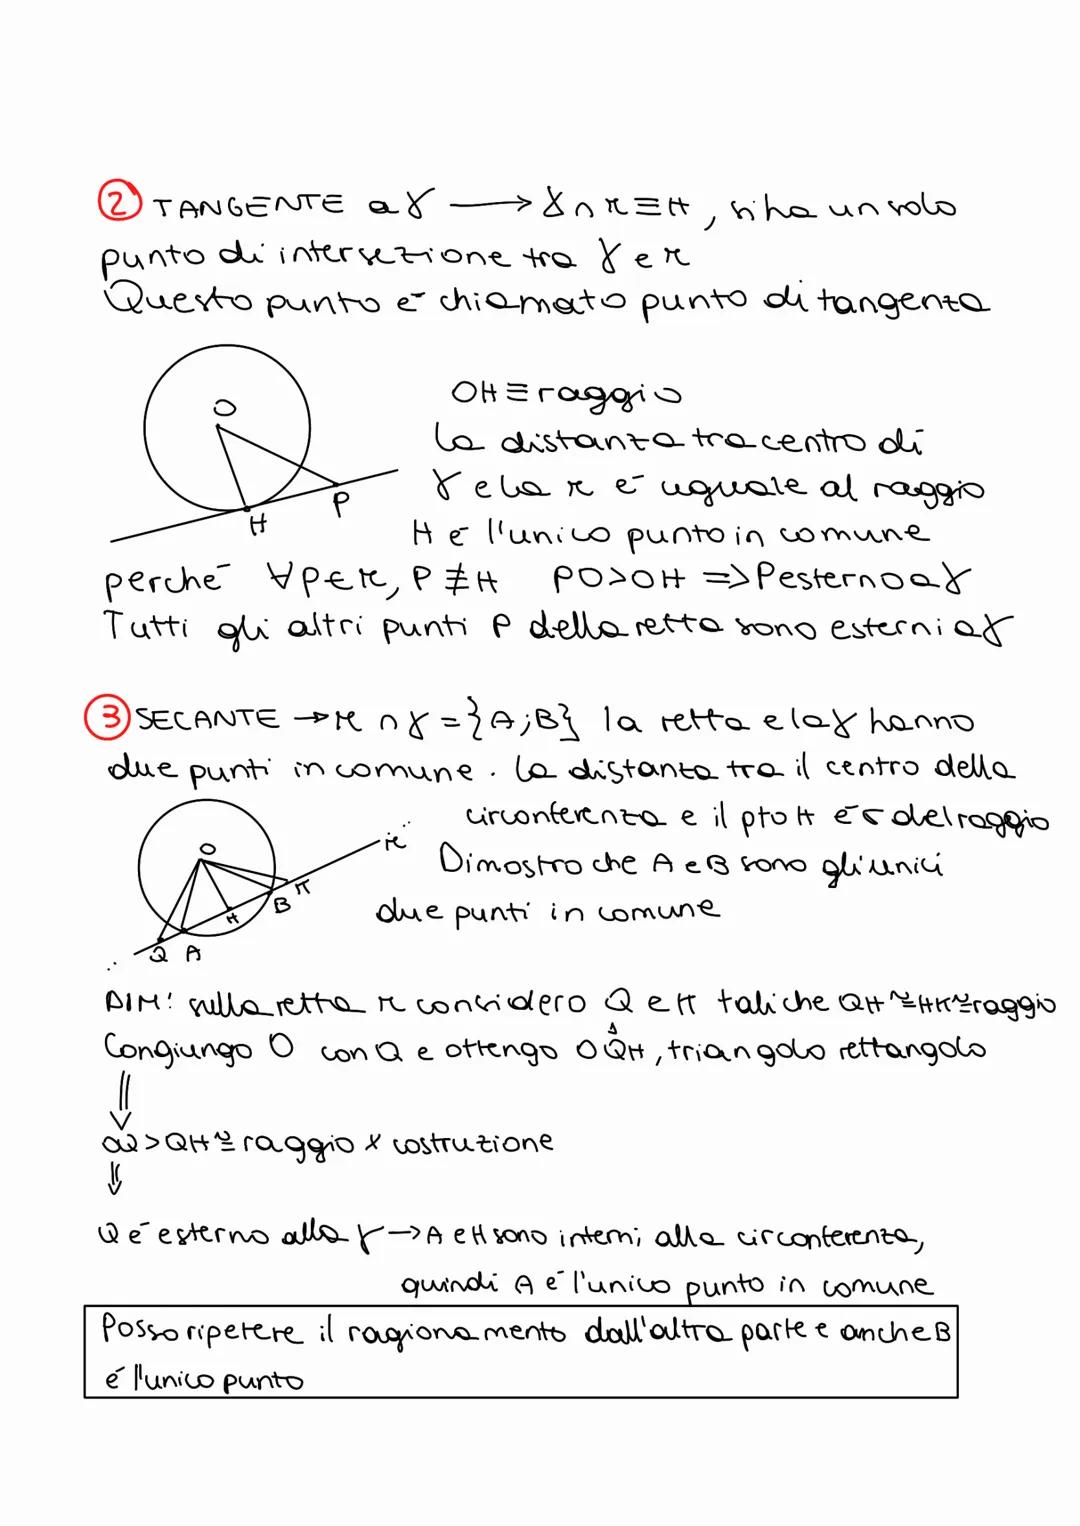 2 TANGENTE a γ ⟶ γ ∩ r ≡ H, si ha un solo
punto di intersezione tra γ e r
Questo punto é chiamato punto di tangenza
O
P
H
OH ≡ raggio
la distanza tra centro di
γ e la r é uguale al raggio
H é l'unico punto in comune
perché ∀P∈r, P ≢ H PO>OH => P esterno a γ
Tutti gli altri punti P della retta sono esterni a γ
3 SECANTE → r ∩ γ = {A;B} la retta e la γ hanno
due punti in comune. La distanza tra il centro della
circonferenza e il pto H é < del raggio
Dimostro che A e B sono gli unici
due punti in comune
O
r
K
B
H
Q A
DIM: sulla retta r considero Q e K tali che QH ≅ HK ≅ raggio
Congiungo O con Q e ottengo OQ̂H, triangolo rettangolo
⇓
OQ > QH ≅ raggio x costruzione
⇓
Q é esterno alla γ → A e H sono interni alla circonferenza,
quindi A é l'unico punto in comune
Posso ripetere il ragionamento dall'altra parte e anche B
é l'unico punto